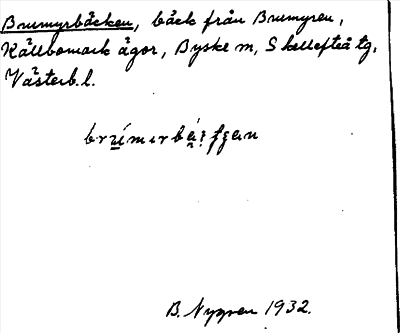 Brumyrbäcken, bäck från Brumyren,
Källbomark ägor, Byske sn, Skellefteå tg,
Västerb.l.
B. Nygren 1932.